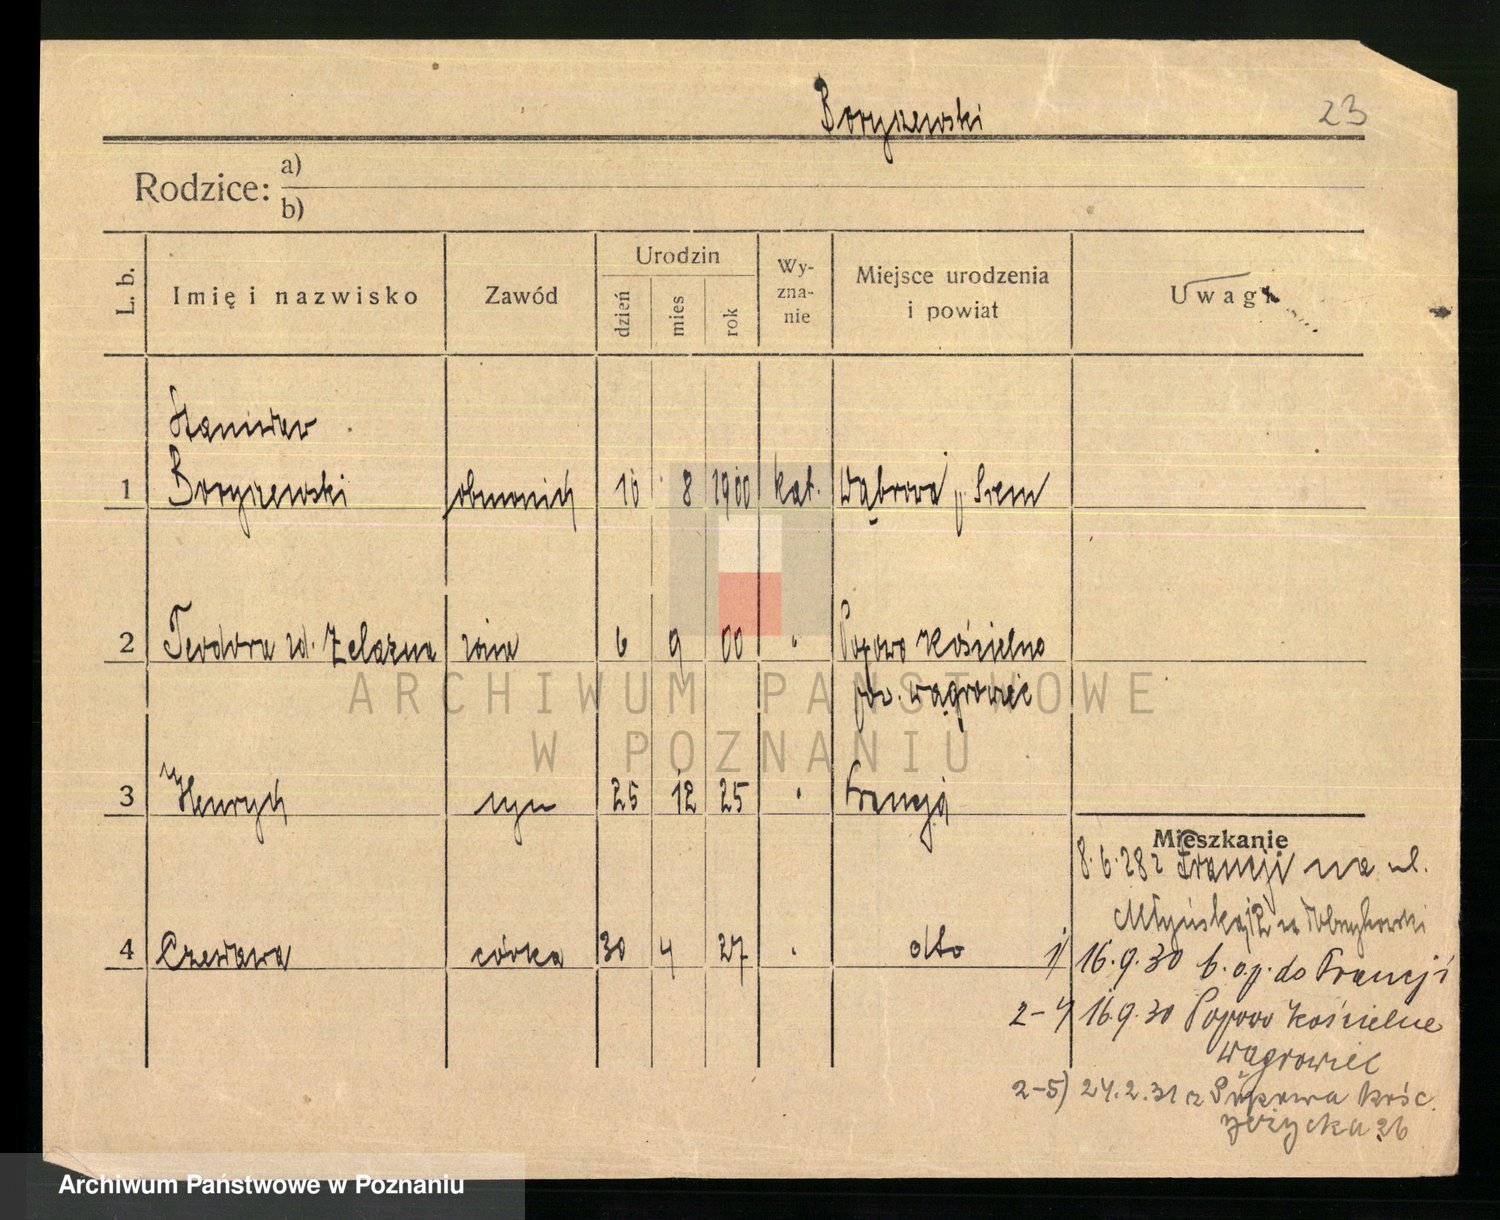 Boryszewski
23
Rodzice: a)
b)
L. b.
Imię i nazwisko
Zawód
Urodzin
dzień
mies
rok
Wy-
zna-
nie
Miejsce urodzenia
i powiat
Uwagi
Stanisław
1 Boryszewski 10 8 1900 kat. Dąbrowa p Śrem
2 Teodora zd. Żelazna żona 6 9 00 " Popowo Kościelne
pow. Wągrowiec
3 Henryk syn 25 12 25 " Francja
Mieszkanie
8.6.28 z Francji na ul.
Młyńska 12
4 Czesława córka 30 4 27 " dtto
1) 16.9.30 b. op. do Francji
2-4) 16.9.30 Popowo Kościelne
Wągrowiec
2-5) 24.2.31 z Popowa Kośc.
Jeżycka 26
ARCHIWUM PAŃSTWOWE
W POZNANIU
Archiwum Państwowe w Poznaniu